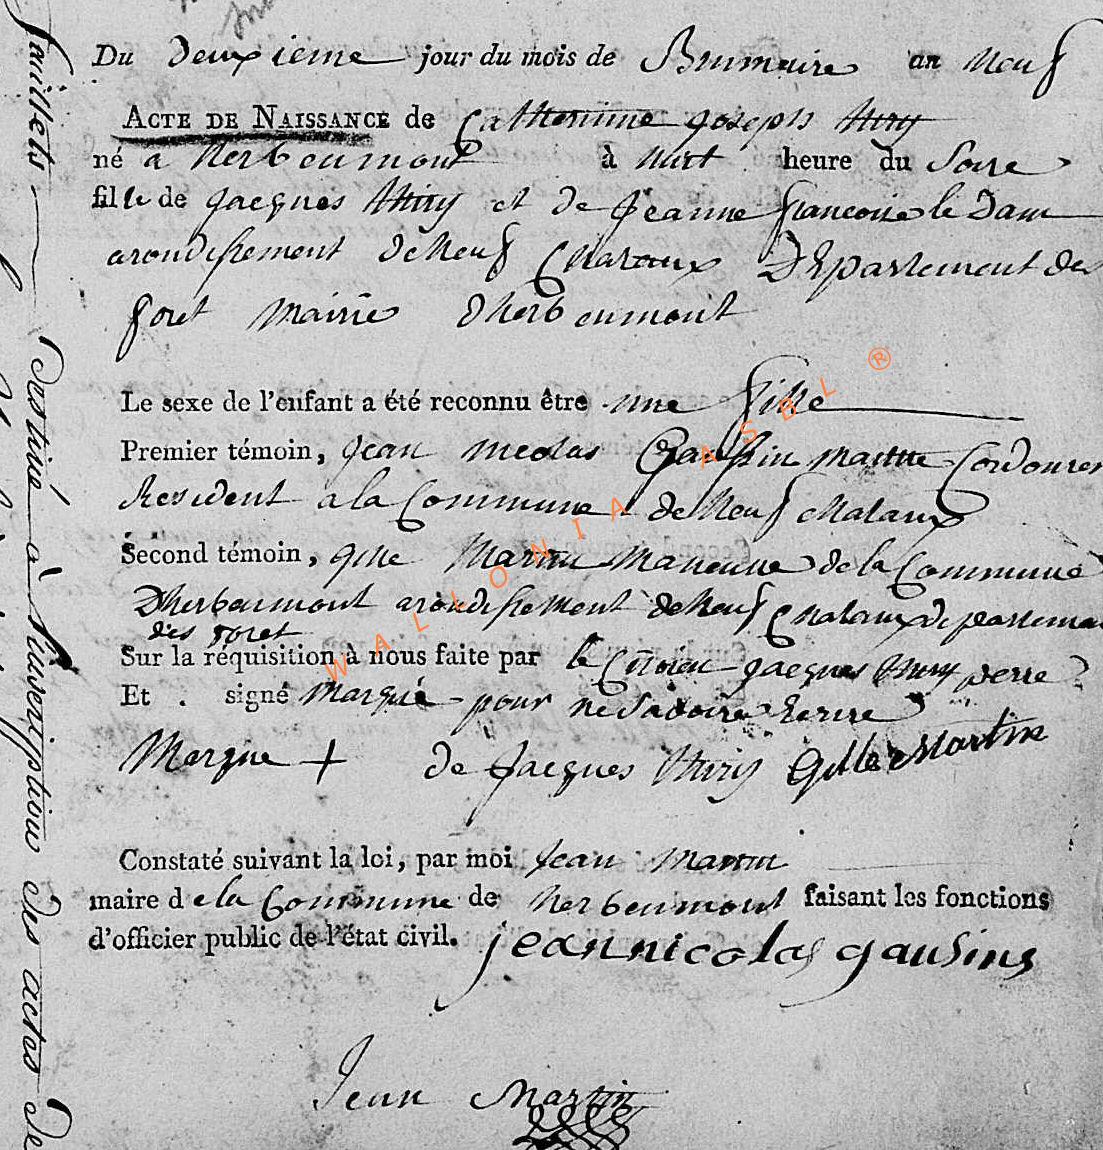 Du deuxieme jour du mois de Brumaire an neuf
ACTE DE NAISSANCE de Catherinne joseph thiry
né a herbeumont à huit heure du Soire
fille de jacques thiry et de jeanne francoise le Dam
arondissement deneuf Chataux Departement des
foret Mairie dherbeumont
Le sexe de l'enfant a été reconnu être une fille
Premier témoin, jean nicolas Gaussin maitre Cordonier
Resident a la Commune de neuf chataux
Second témoin, gille Martin de la Commune
Dherbeumont arondissement de neuf Chataux departement
des foret
Sur la réquisition à nous faite par le Citoien jacques thiry perre
Et signé marque pour ne Savoire Ecrire
Marque + de jacques thiry Gille Martin
Constaté suivant la loi, par moi jean martin
maire de la Commune de herbeumont faisant les fonctions
d'officier public de l'état civil.
jean nicolas gausins
Jean Martin
feuillets destiné à l'inscription des actes de
WALLONIA ASBL ®